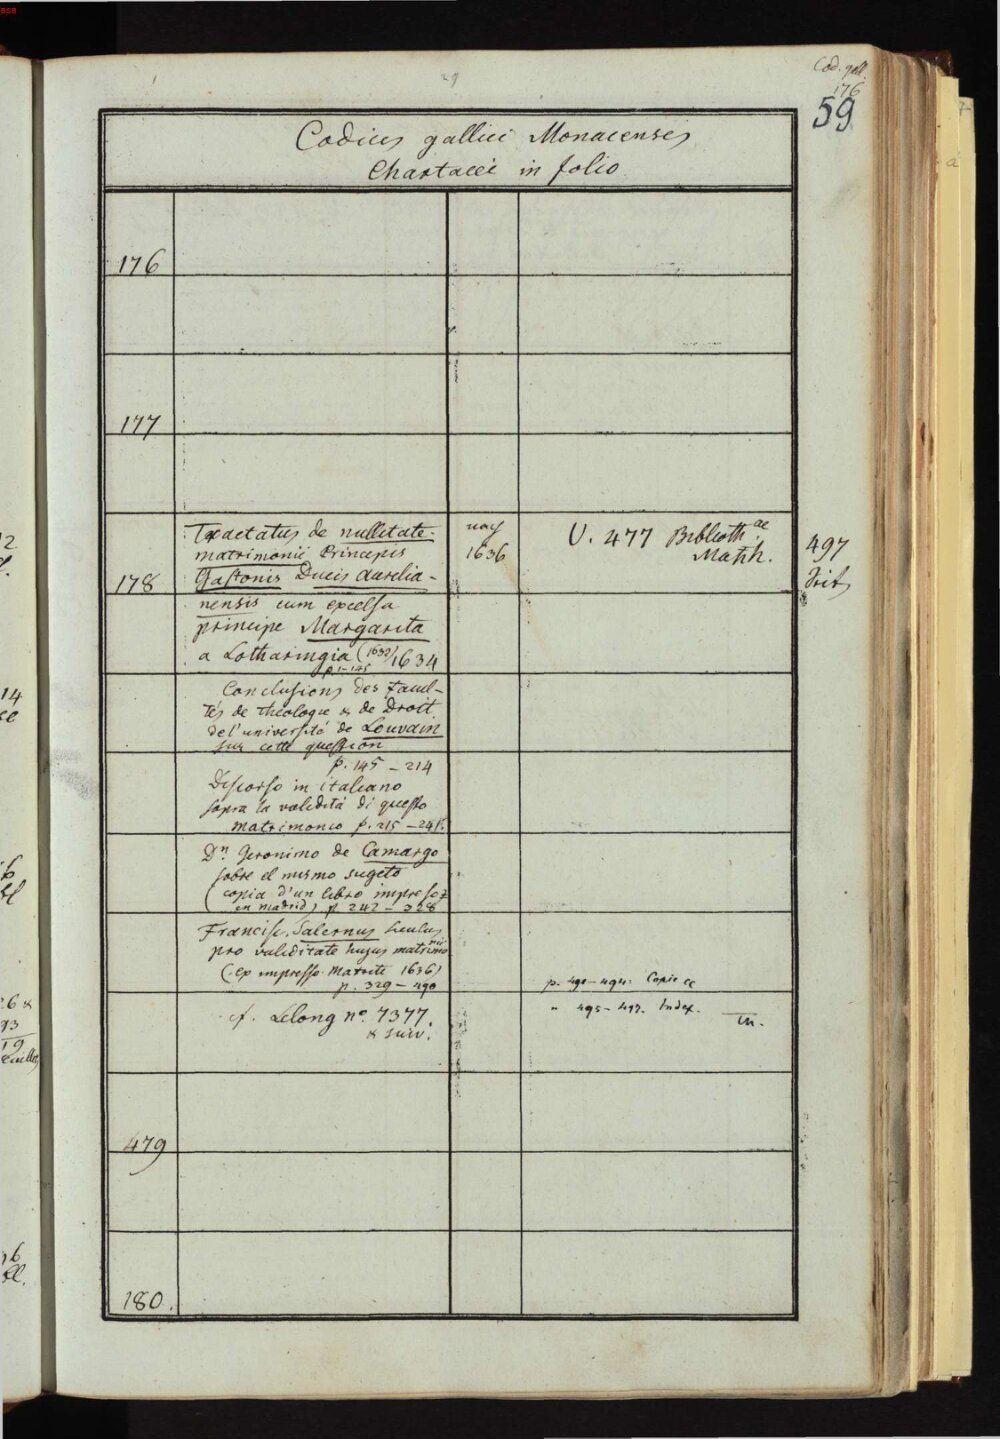 Cod. gall.
176
59
Codices gallici Monacenses
Chartacei in folio
176
177
178
Tractatus de nullitate
matrimonii Principis
Gastonis Ducis Aurelia-
nensis cum excelsa
principe Margarita
a Lotharingia (1632) 1634
p. 1-145
Conclusions des facul-
tés de théologie & de Droit
de l'université de Louvain
sur cette question
p. 145 - 214
Discorso in italiano
sopra la validità di questo
matrimonio p. 215 - 241.
Dn. Geronimo de Camargo
sobre el mismo sugeto
(copia d'un libro impreso
en madrid) p. 242 - 328
Francisc. Salernus Siculus
pro validitate hujus matrimonii
(ex impresso Matriti 1636)
p. 329 - 490
cf. Lelong no. 7377.
& suiv.
nach
1636
U. 477 Biblioth.ae
Manh.
497
p. 490-494: Copie
" 495-497. Index.
479
180.